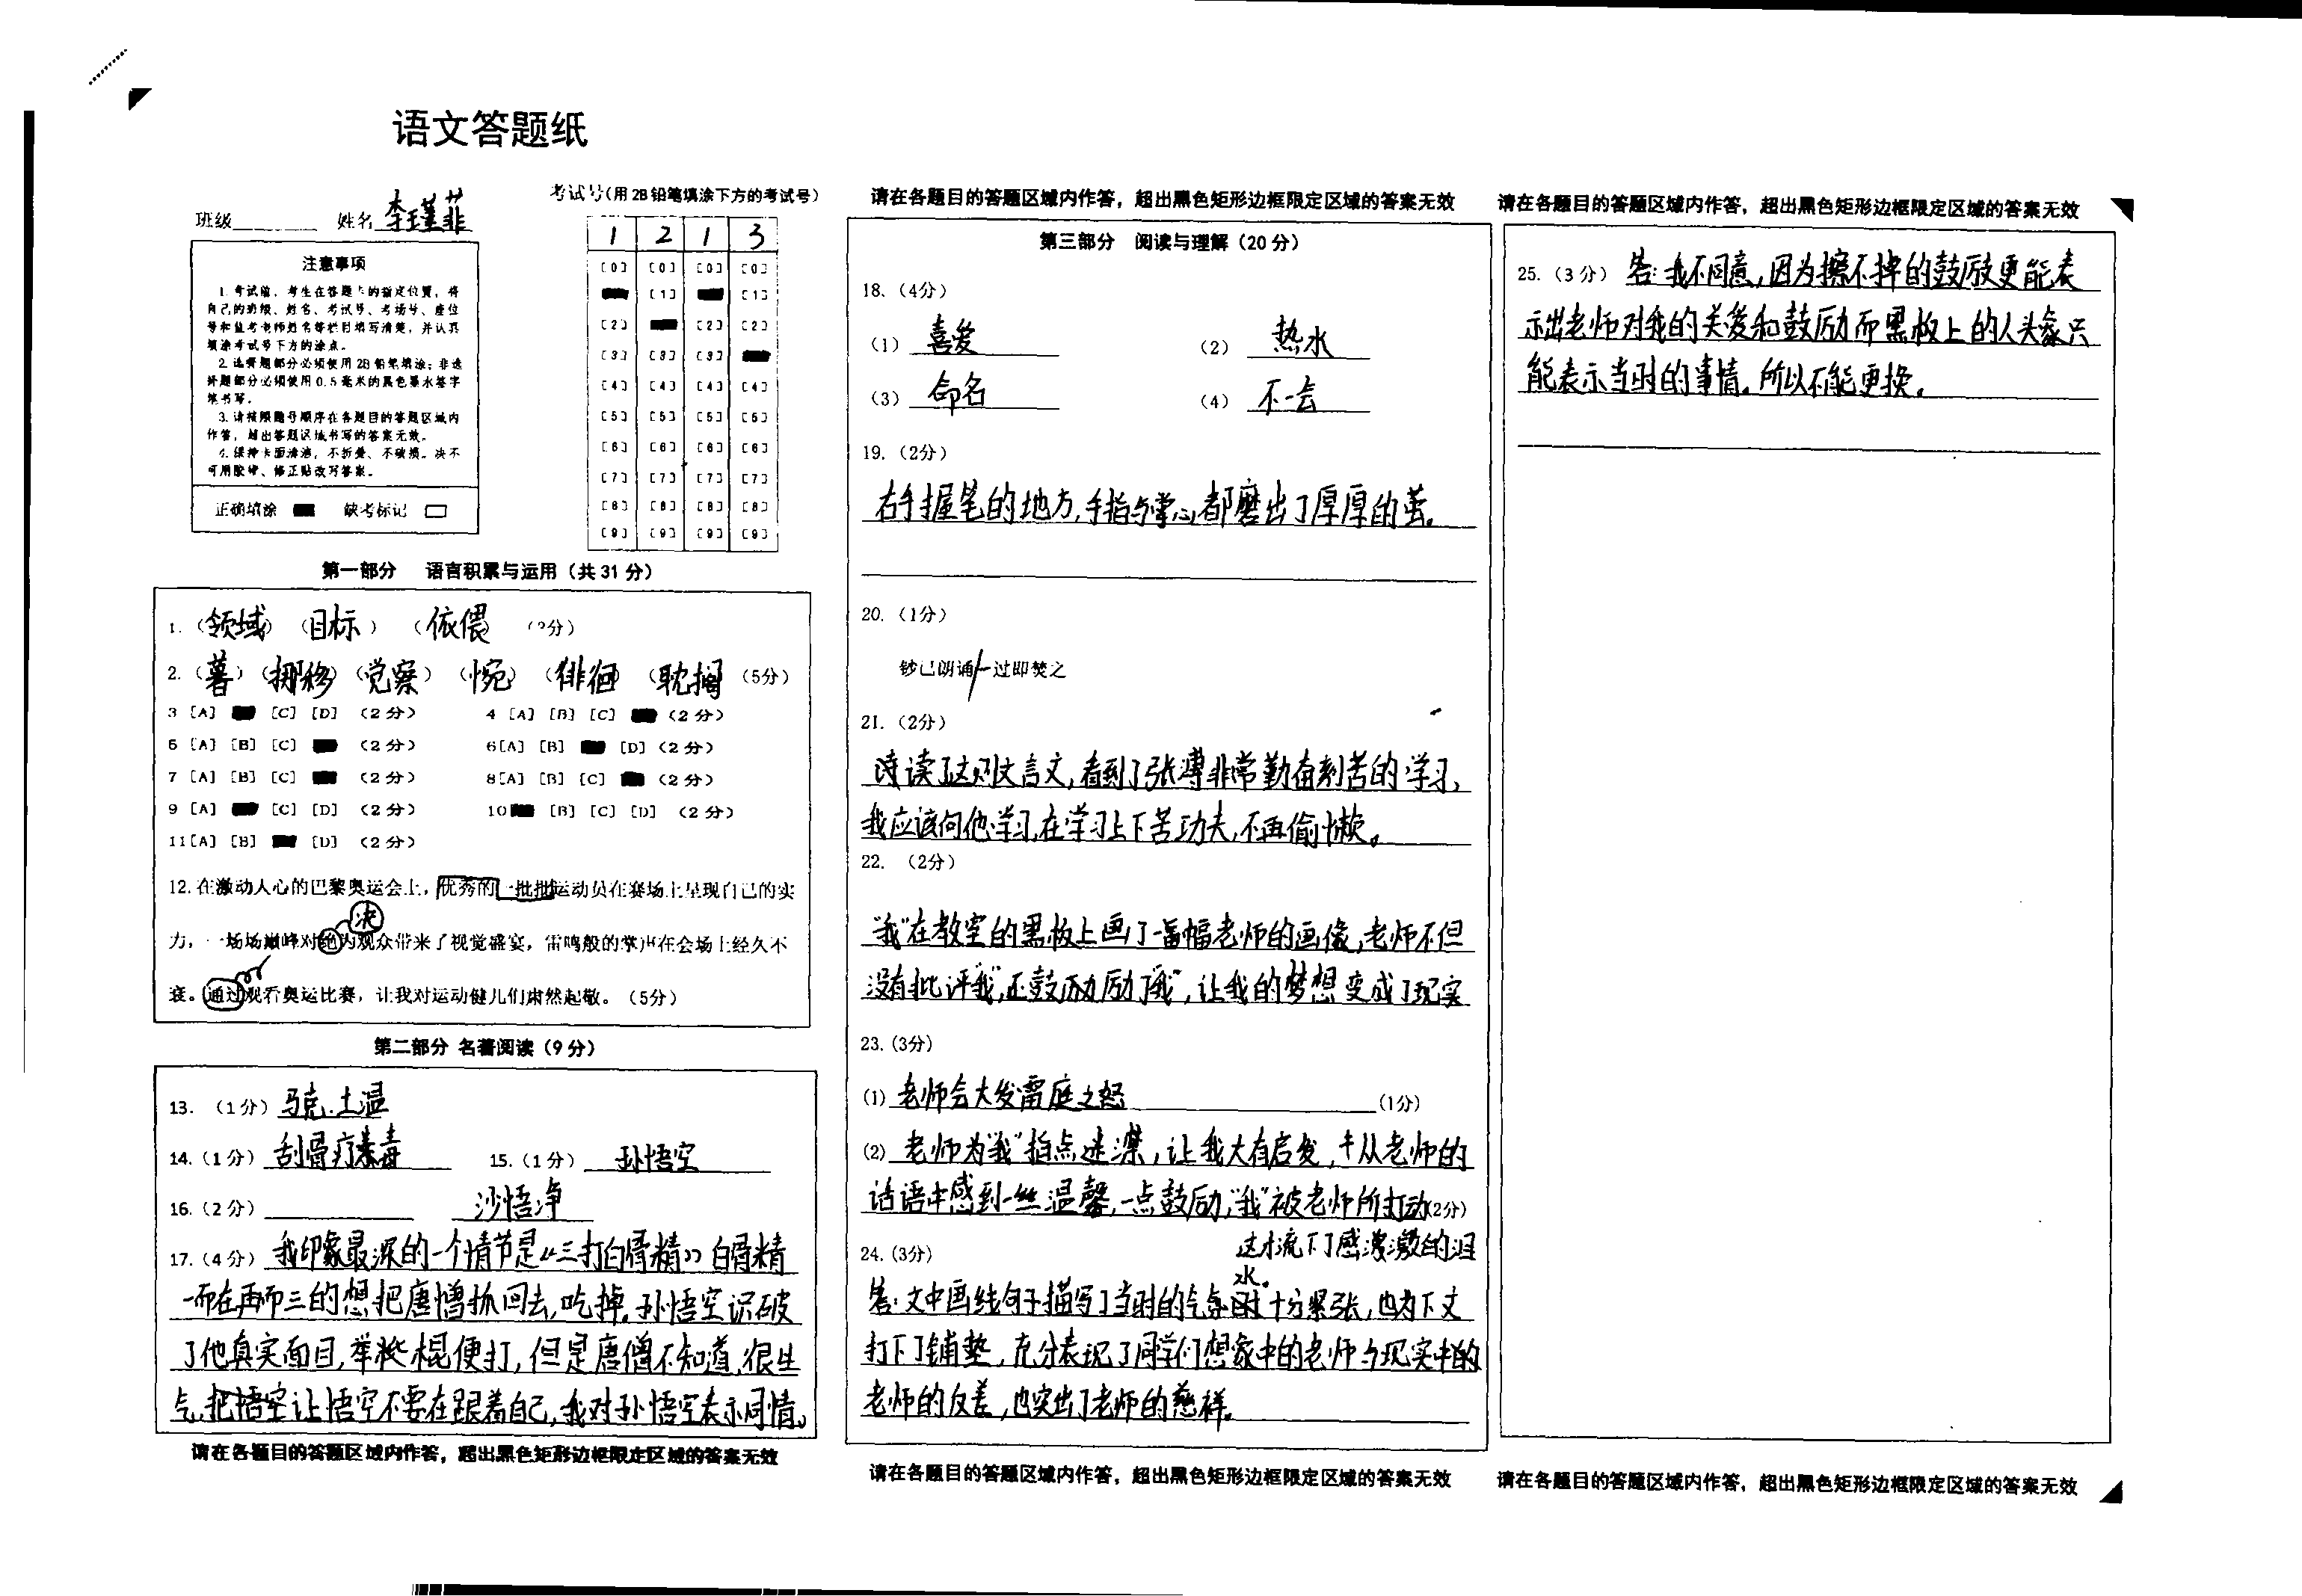 语文答题纸
班级 姓名 李瑾菲
考试号(用2B铅笔填涂下方的考试号)
1 2 1 3
[0] [0] [0] [0]
[1] [1]
[2] [2] [2]
[3] [3] [3]
[4] [4] [4] [4]
[5] [5] [5] [5]
[6] [6] [6] [6]
[7] [7] [7] [7]
[8] [8] [8] [8]
[9] [9] [9] [9]
注意事项
1.考试前,考生在答题卡的指定位置,将
自己的班级、姓名、考试号、考场号、座位
号和监考老师姓名等栏目填写清楚,并认真
填涂考试号下方的涂点。
2.选择题部分必须使用2B铅笔填涂;非选
择题部分必须使用0.5毫米的黑色墨水签字
笔书写。
3.请按照题号顺序在各题目的答题区域内
作答,超出答题区域书写的答案无效。
4.保持卡面清洁,不折叠、不破损。决不
可用胶带、修正贴改写答案。
正确填涂 缺考标记
第一部分 语言积累与运用(共31分)
1.(领域)(目标)(依偎)
2.(暮)(挪移)(觉察)(惋)(徘徊)(耽搁)(5分)
3 [A] [C] [D] (2分) 4 [A] [B] [C] (2分)
5 [A] [B] [C] (2分) 6[A] [B] [D](2分)
7 [A] [B] [C] (2分) 8[A] [B] [C] (2分)
9 [A] [C] [D] (2分) 10 [B] [C] [D] (2分)
11[A] [B] [D] (2分)
12.在激动人心的巴黎奥运会上,优秀的一批批运动员在赛场上呈现自己的实
决
力,一场场巅峰对绝为观众带来了视觉盛宴,雷鸣般的掌声在会场上经久不
衰。通过观看奥运比赛,让我对运动健儿们肃然起敬。(5分)
第二部分 名著阅读(9分)
13.(1分)马克.土温
14.(1分)刮骨疗毒 15.(1分)孙悟空
16.(2分) 沙悟净
17.(4分)我印象最深的一个情节是《三打白骨精》白骨精
一而在再而三的想把唐僧抓回去,吃掉.孙悟空识破
了他真实面目,举起棍便打,但是唐僧不知道,很生
气,把悟空让悟空不要在跟着自己,我对孙悟空表示同情。
请在各题目的答题区域内作答,超出黑色矩形边框限定区域的答案无效
请在各题目的答题区域内作答,超出黑色矩形边框限定区域的答案无效
第三部分 阅读与理解(20分)
18.(4分)
(1)喜爱 (2)热水
(3)命名 (4)不一会
19.(2分)
右手握笔的地方,手指与掌心都磨出了厚厚的茧。
20.(1分)
钞已朗诵/一过即焚之
21.(2分)
读了这则文言文,看到了张溥非常勤奋刻苦的学习,
我应该向他学习,在学习上下苦功夫,不再偷懒。
22.(2分)
"我"在教室的黑板上画了一幅老师的画像,老师不但
没有批评"我",还鼓励了"我",让我的梦想变成了现实
23.(3分)
(1)老师会大发雷庭之怒(1分)
(2)老师为"我"指点迷津,让我大有启发,从老师的
话语中感到一丝温馨,一点鼓励,"我"被老师所打动(2分)
这才流下了感激的泪
水。
24.(3分)
答:文中画线句子描写了当时的气氛十分紧张,也为下文
打下了铺垫,充分表现了同学们想象中的老师与现实中的
老师的反差,也突出了老师的慈祥。
请在各题目的答题区域内作答,超出黑色矩形边框限定区域的答案无效
请在各题目的答题区域内作答,超出黑色矩形边框限定区域的答案无效
25.(3分)答:我不同意,因为擦不掉的鼓励更能表
示出老师对我的关爱和鼓励而黑板上的人头象只
能表示当时的事情。所以不能更换。
请在各题目的答题区域内作答,超出黑色矩形边框限定区域的答案无效